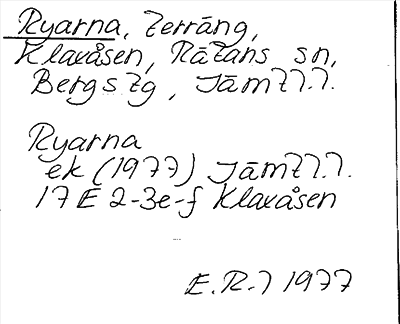 Ryarna, terräng,
Klaxåsen, Rätans sn,
Bergs tg, Jämtl.l.
Ryarna
ek (1977) Jämtl.l.
17 E 2-3e-f Klaxåsen
E.R-l 1977